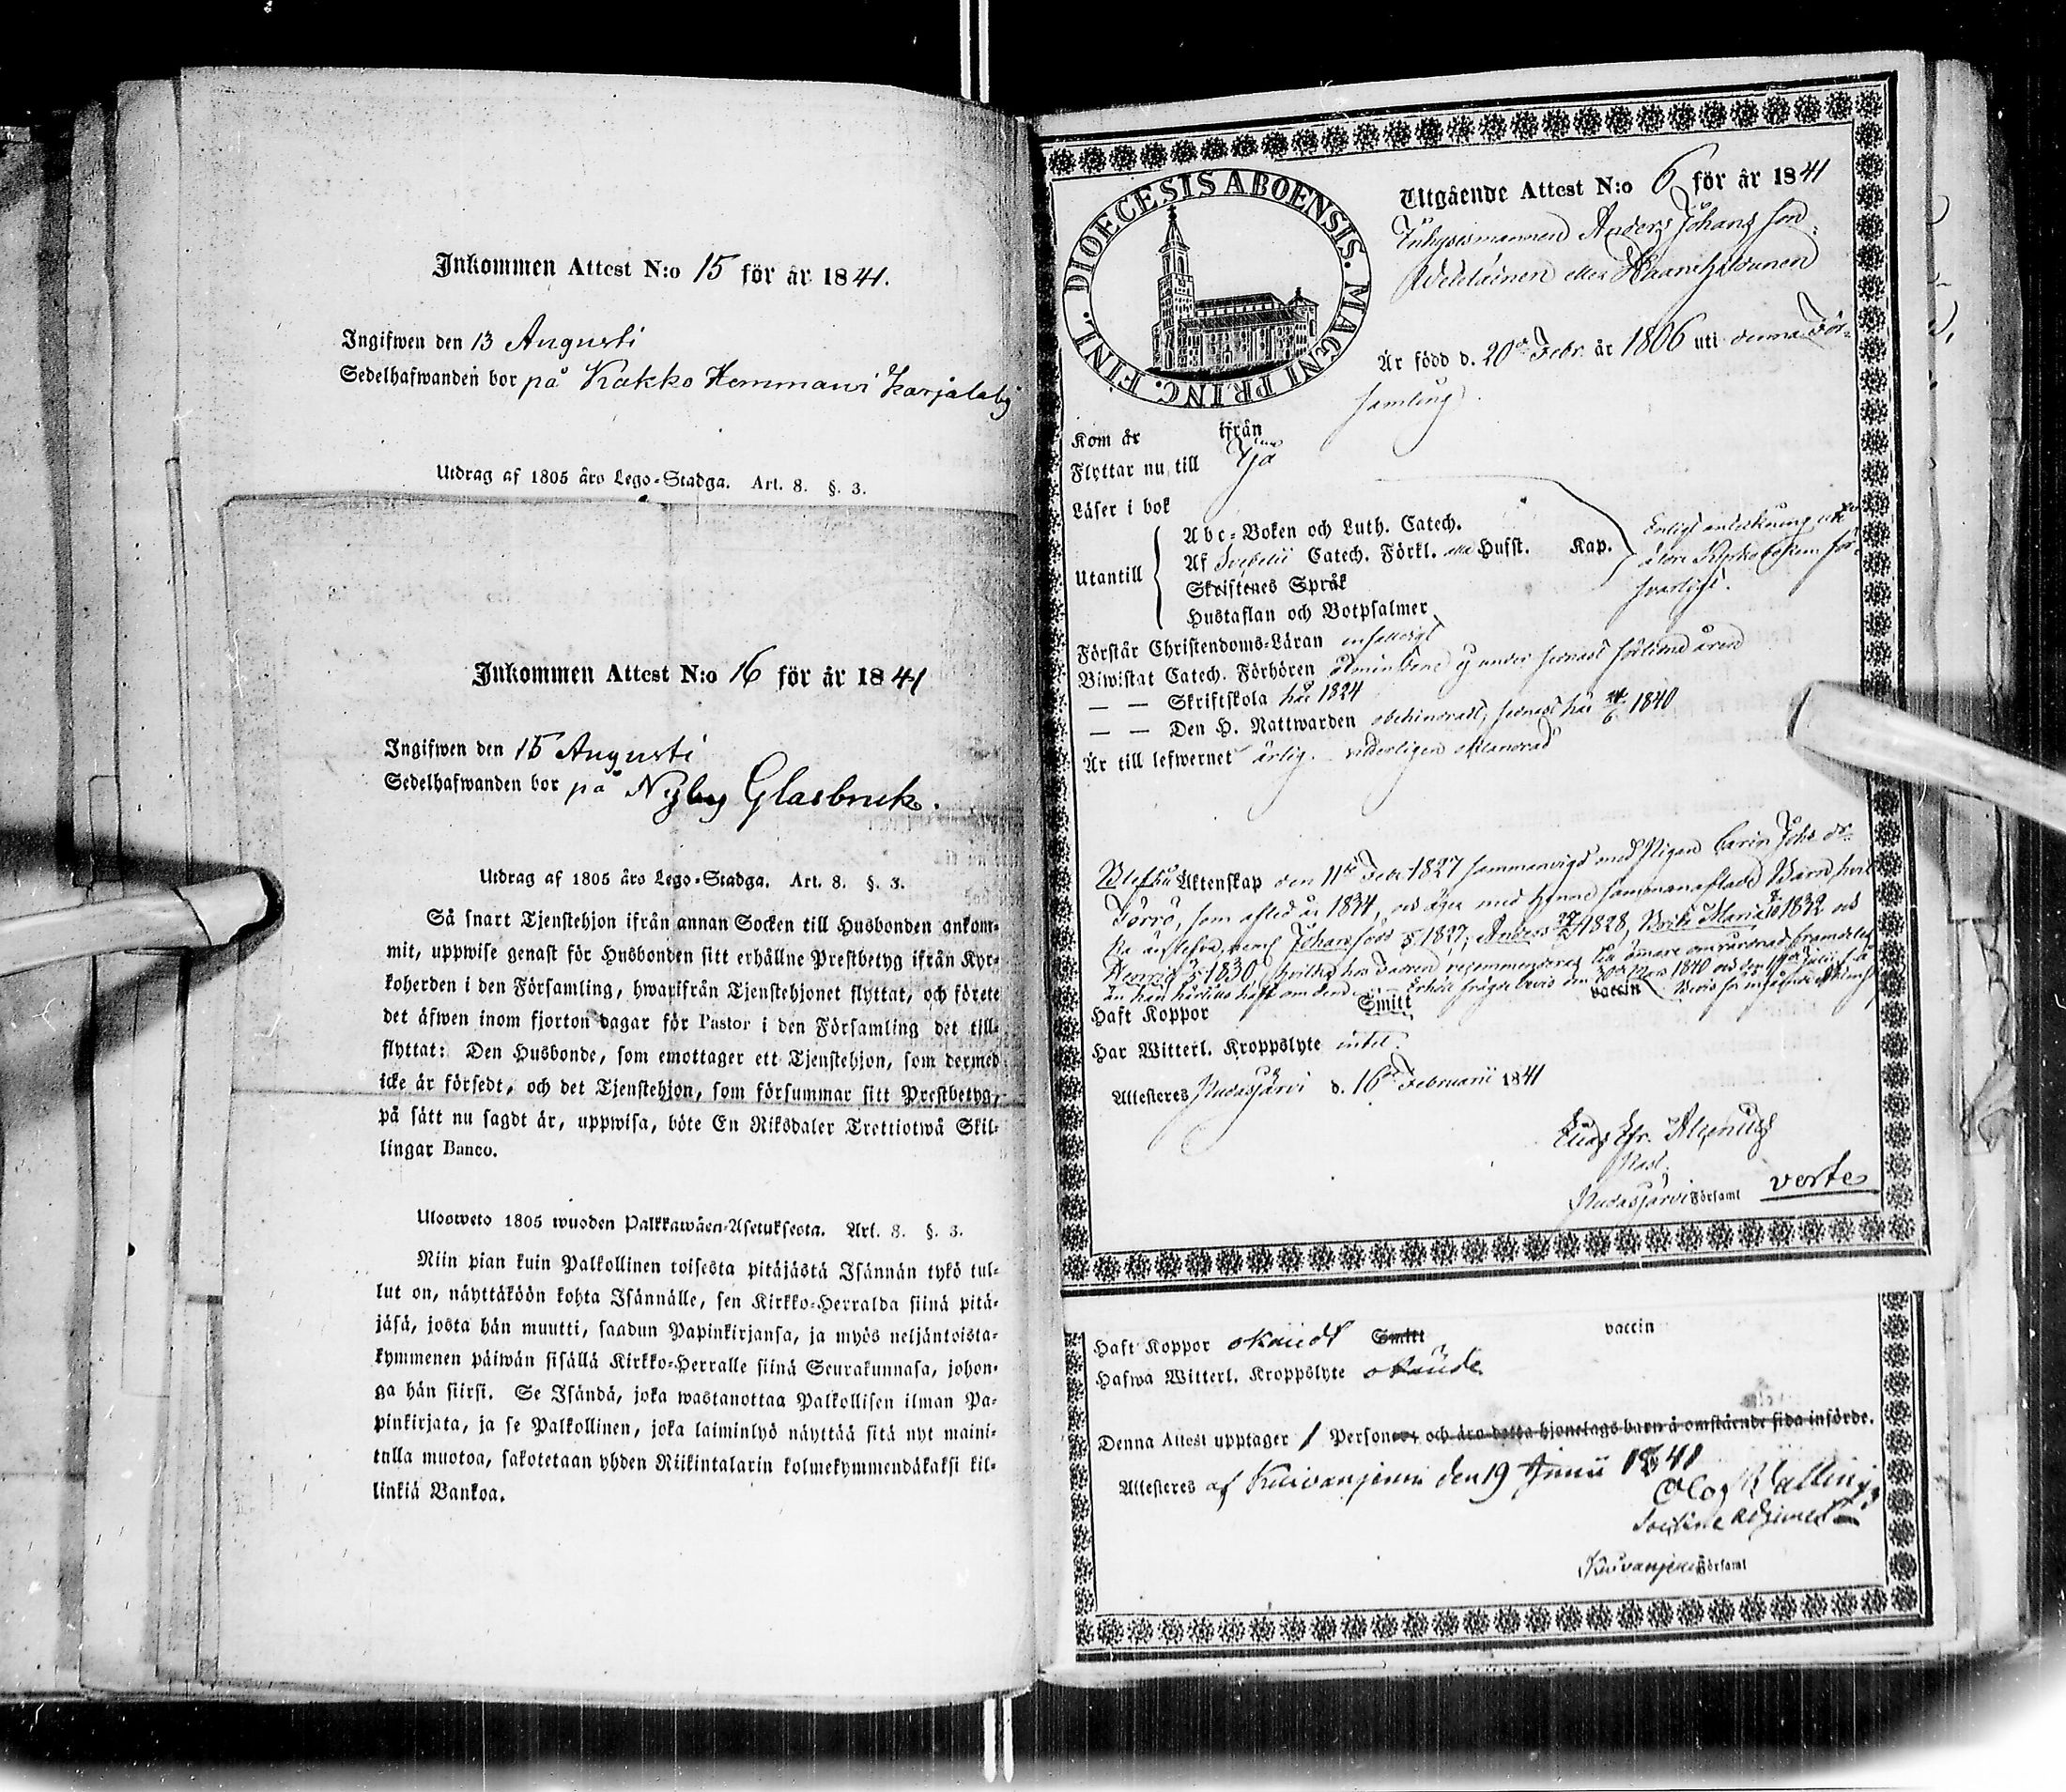 Inkommen Attest N:o 15 för år 1841.
Ingifwen den 13 Augusti
Sedelhafwanden bor på Kakko Hemman i Karjalaby
Utdrag af 1805 års Lego-Stadga. Art. 8. §. 3.
Inkommen Attest N:o 16 för år 1841
Ingifwen den 15 Augusti
Sedelhafwanden bor på Nyby Glasbruk.
Utdrag af 1805 års Lego-Stadga. Art. 8. §. 3.
Så snart Tjenstehjon ifrån annan Socken till Husbonden ankom-
mit, uppwise genast för Husbonden sitt erhållne Prestbetyg ifrån Kyr-
koherden i den Församling, hwarifrån Tjenstehjonet flyttat, och förete
det äfwen inom fjorton dagar för Pastor i den Församling det till-
flyttat: Den Husbonde, som emottager ett Tjenstehjon, som dermed
icke är försedt, och det Tjenstehjon, som försummar sitt Prestbetyg,
på sätt nu sagdt är, uppwisa, böte En Riksdaler Trettiotwå Skil-
lingar Banco.
Uloosweto 1805 wuoden Palkkawäen-Asetuksesta. Art. 8. §. 3.
Niin pian kuin Palkollinen toisesta pitäjästä Isännän tykö tul-
lut on, näyttäköön kohta Isännälle, sen Kirkko-Herralda siinä pitä-
jäsä, josta hän muutti, saadun Papinkirjansa, ja myös neljäntoista-
kymmenen päiwän sisällä Kirkko-Herralle siinä Seurakunnasa, johon-
ga hän siirsi. Se Isändä, joka wastanottaa Palkollisen ilman Pa-
pinkirjata, ja se Palkollinen, joka laiminlyö näyttää sitä nyt maini-
tulla muotoa, sakotetaan yhden Riikintalarin kolmekymmendäkaksi kil-
linkiä Bankoa.
DIOECESIS ABOENSIS. MAGNI PRINC. FINL.
Utgående Attest N:o 6 för år 1841
Inhysismannen Anders Johansson
eller
Är född d. 20de Febr. år 1806 uti denna För-
samling.
Kom år ifrån
Flyttar nu till
Läser i bok
Utantill
Abc-Boken och Luth. Catech.
Af Svebelii Catech. Förkl. Husst. Kap.
Skriftenes Språk
Hustaflan och Botpsalmer
Enligt anteckning
äldre Kyrkoboken för-
svarligt.
Förstår Christendoms-Läran enfaldigt
Biwistat Catech. Förhören åtminstone ej under sednast förlidna åren
— — Skriftskola här 1824
— — Den H. Nattwarden obehindradt, sednast här 24/6 1840
Är till lefwernet ärlig. widerligen oklandrad
Blef här Äktenskap den 11te Febr 1827 sammanvigd med Pigan Carin Johs dr
Törrö, som afled år 1834, och äger med henne sammanaflade Barn,
Johan född 1827, Anders 1828, Brita Maria 1832 och
Henric 1830
Haft Koppor Smitt vaccin
Har Witterl. Kroppslyte intet.
Attesteras Pudasjärvi d. 16de Februarii 1841
Elias Efr. Alcenius
Past.
Pudasjärvi Församl
vertes
Haft Koppor okändt Smitt vaccin
Hafwa Witterl. Kroppslyte okände
Denna Attest upptager 1 Personer och äro detta hjonelags barn å omstående sida införde.
Attesteras af Kuivaniemi den 19 Junii 1841
Olof Wallin
Kuivaniemi Församl